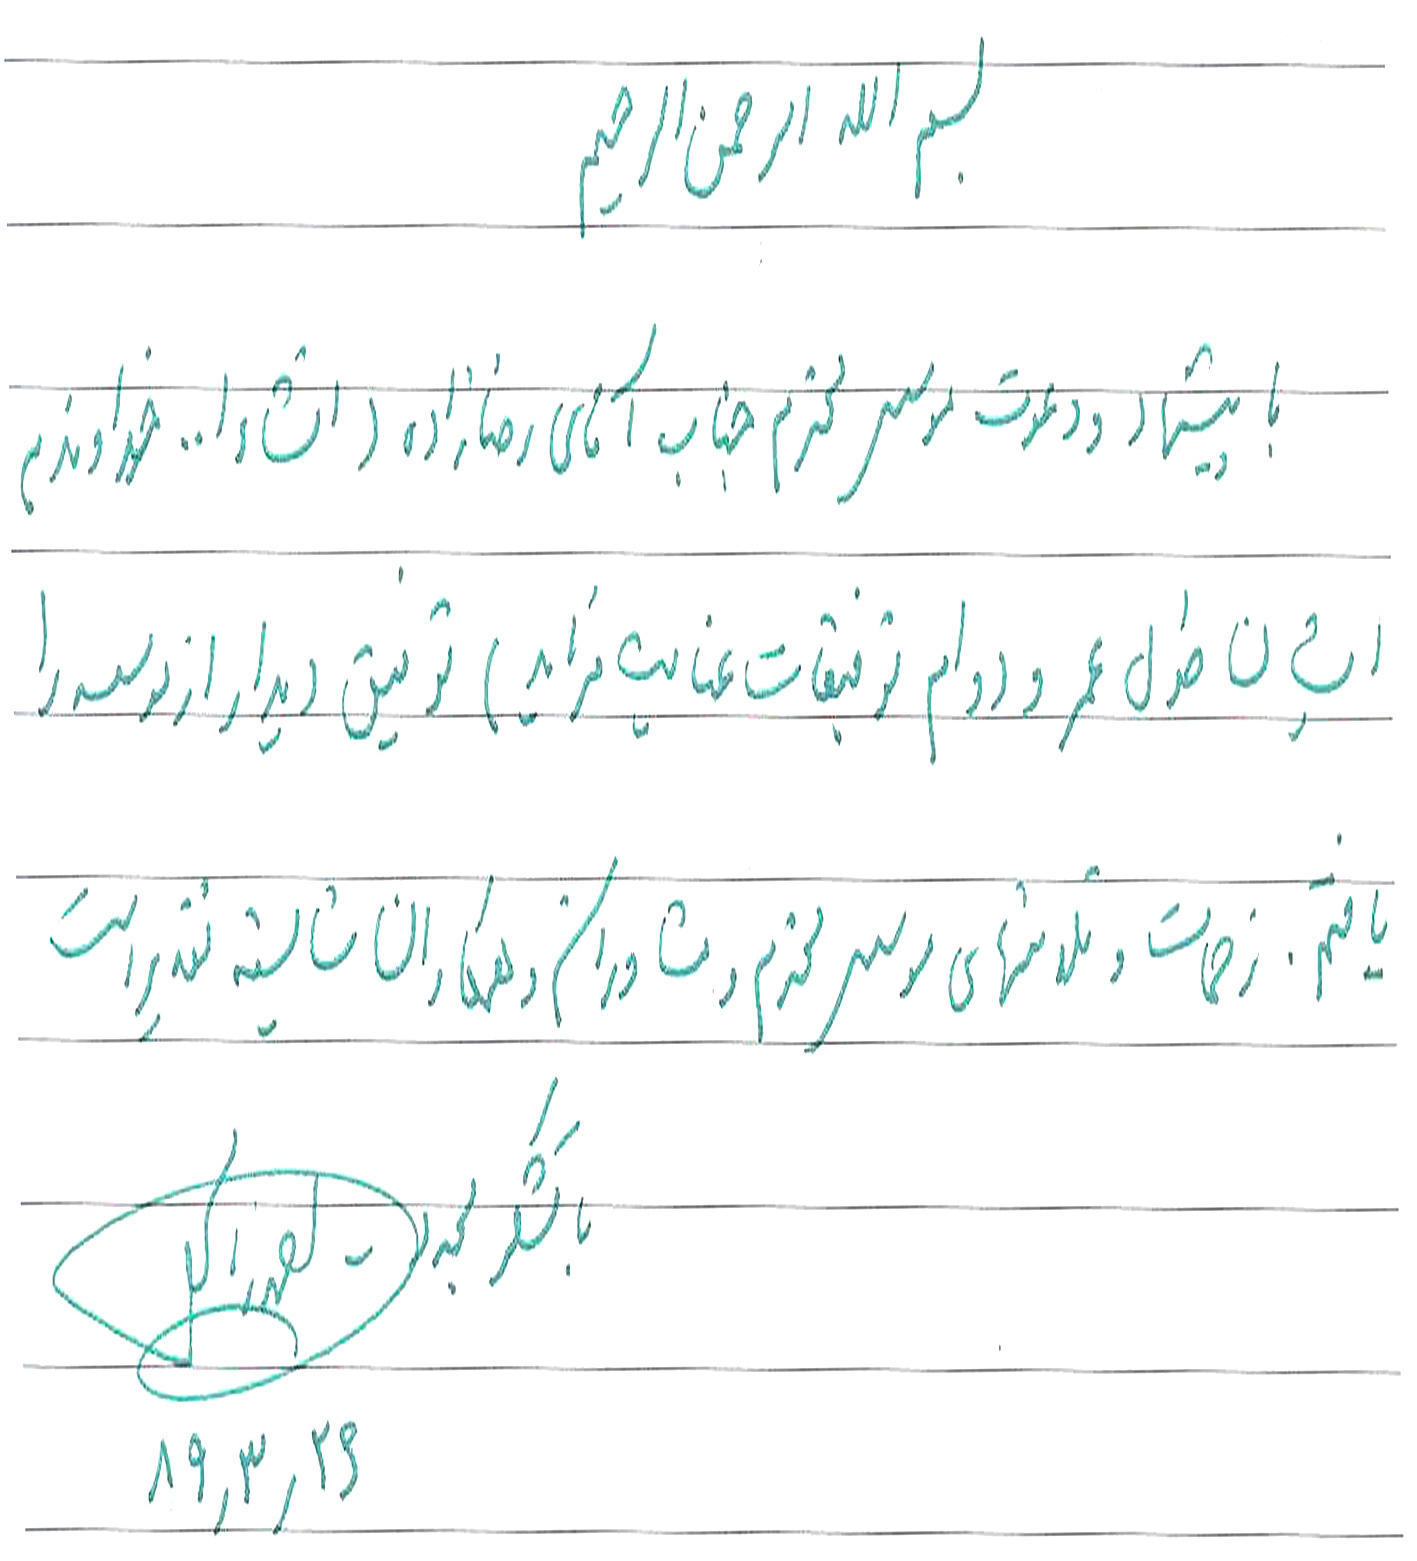 بسم الله الرحمن الرحیم
با پیشنهاد و دعوت موسس محترم جناب آقای رضازاده (ان شاء ا... خداوند به
ایشان طول عمر و دوام توفیقات عنایت فرماید) توفیق دیدار از مدرسه را
یافتم. زحمات و تلاشهای موسس محترم و مشاورانش و همکاران شایسته تقدیر است
با تشکر مجدد
۸۹,۳,۲۹